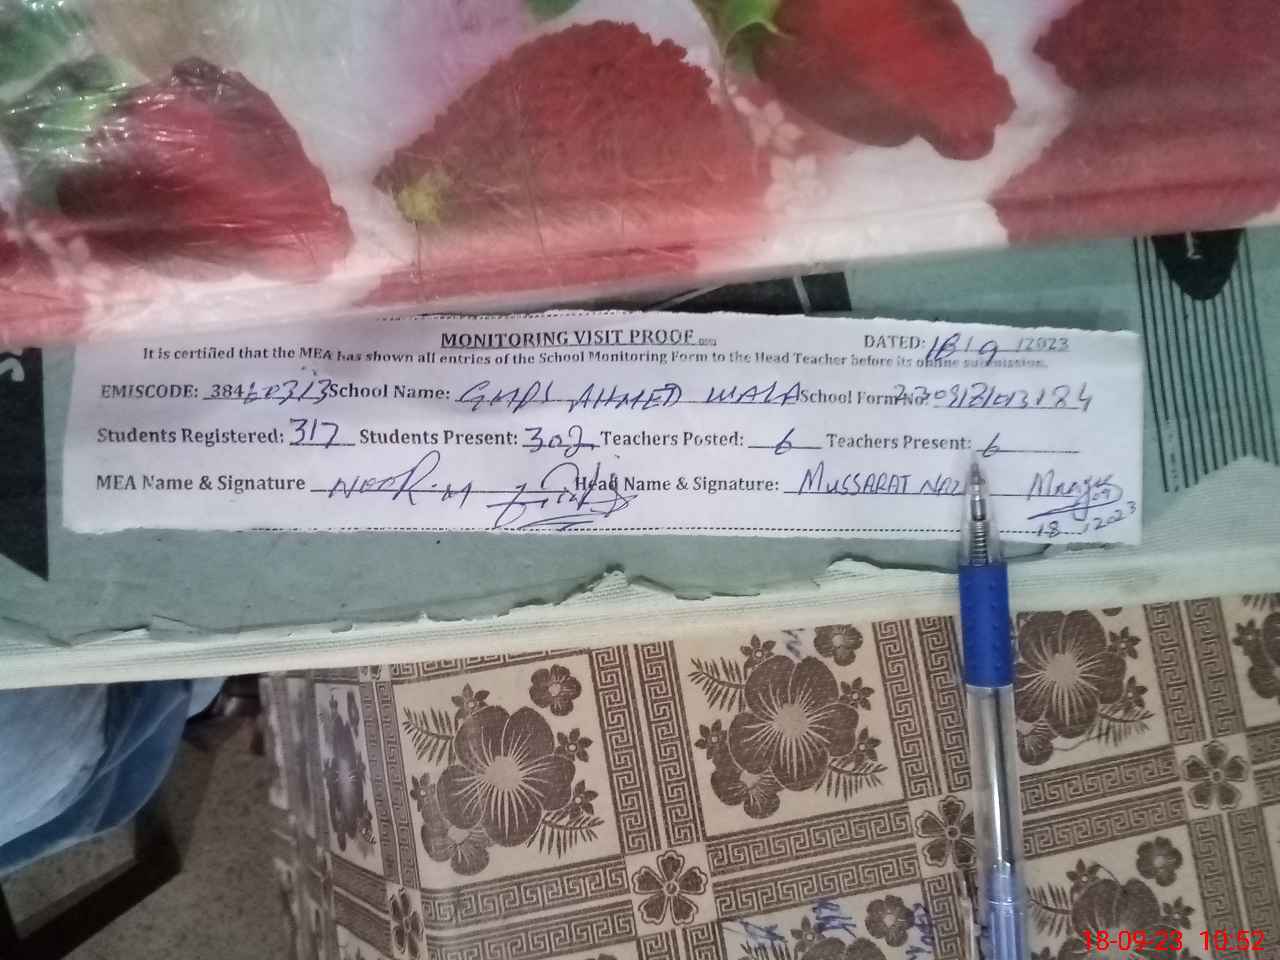 MONITORING VISIT PROOF
DATED: 18/9/2023
It is certified that the MEA has shown all entries of the School Monitoring Form to the Head Teacher before its online submission.
EMISCODE: 38460313 School Name: GMPS AHMED WALA School Form No:
Students Registered: 317 Students Present: 302 Teachers Posted: 6 Teachers Present: 6
MEA Name & Signature Head Name & Signature: MUSSARAT
18/09/2023
18-09-23 10:52